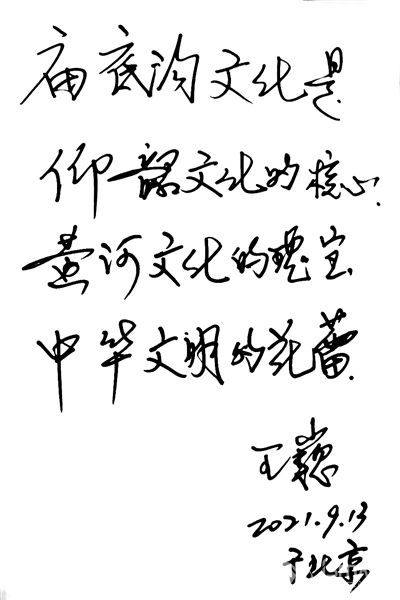 庙底沟文化是
仰韶文化的核心.
黄河文化的瑰宝
中华文明的花蕾.
王巍
2021.9.13
于北京